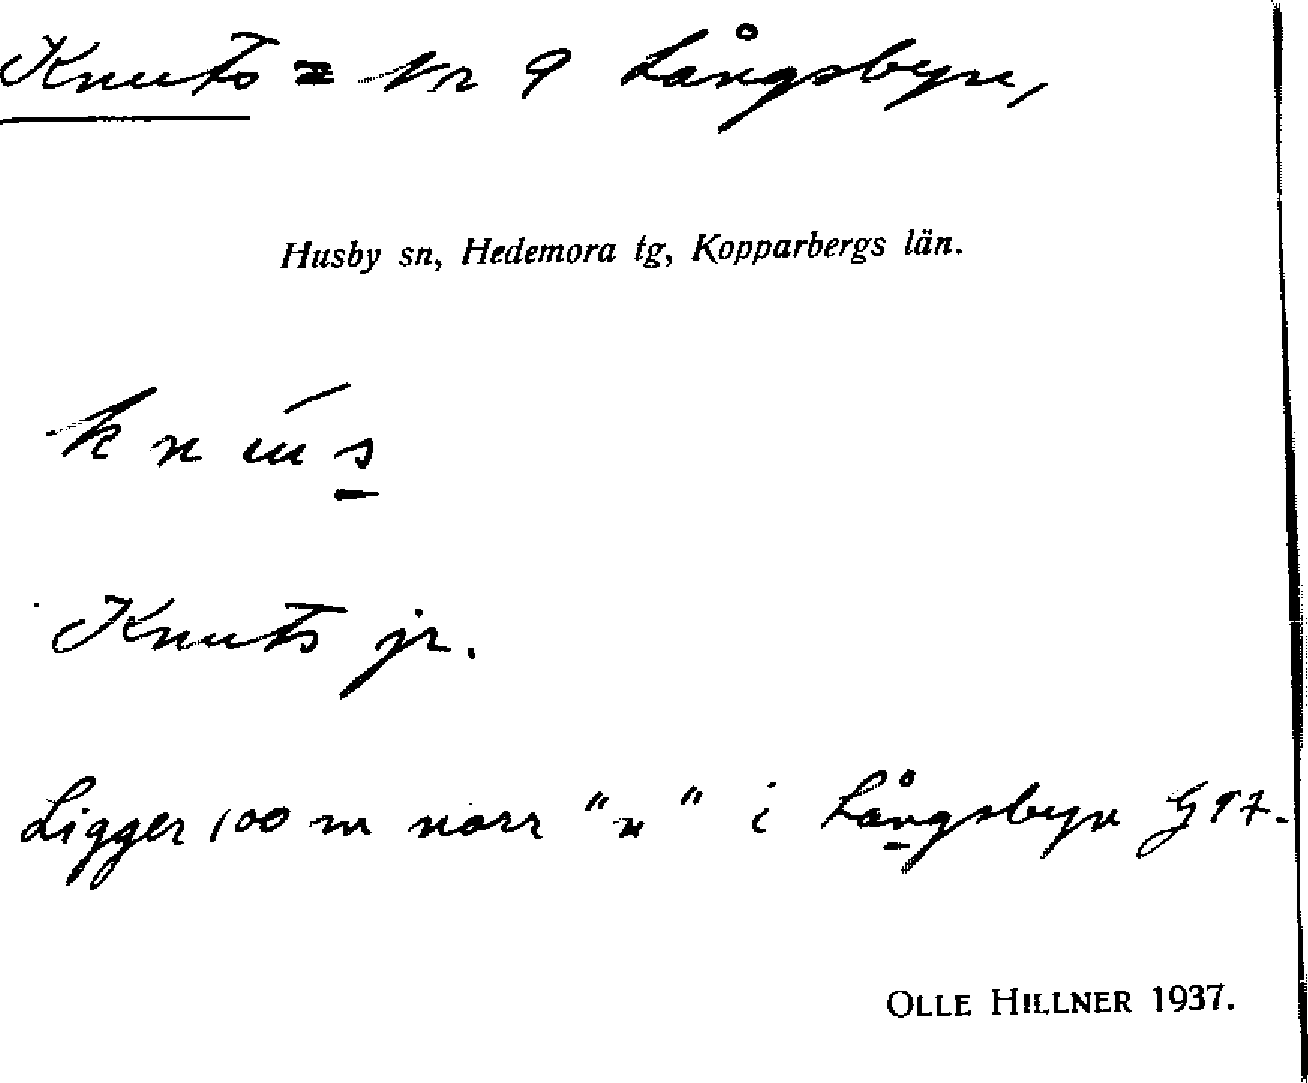 Knuts = Nr 9 Långsbyn,
Husby sn, Hedemora tg, Kopparbergs län.
knús
Knuts jr.
Ligger 100 m norr "n" i Långsbyn G 17.
OLLE HILLNER 1937.